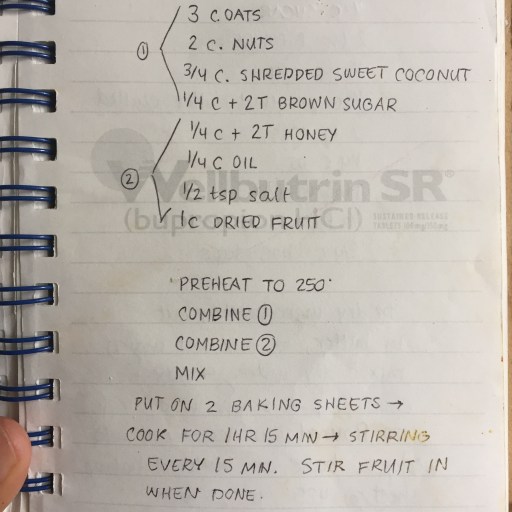 ① 3 C. OATS
2 C. NUTS
3/4 C. SHREDDED SWEET COCONUT
1/4 C + 2T BROWN SUGAR
② 1/4 C + 2T HONEY
1/4 C OIL
Wellbutrin SR®
1/2 tsp salt
(bupropion HCl)
1C DRIED FRUIT
PREHEAT TO 250°
COMBINE ①
COMBINE ②
MIX
PUT ON 2 BAKING SHEETS →
COOK FOR 1HR 15 MIN → STIRRING
EVERY 15 MIN. STIR FRUIT IN
WHEN DONE.